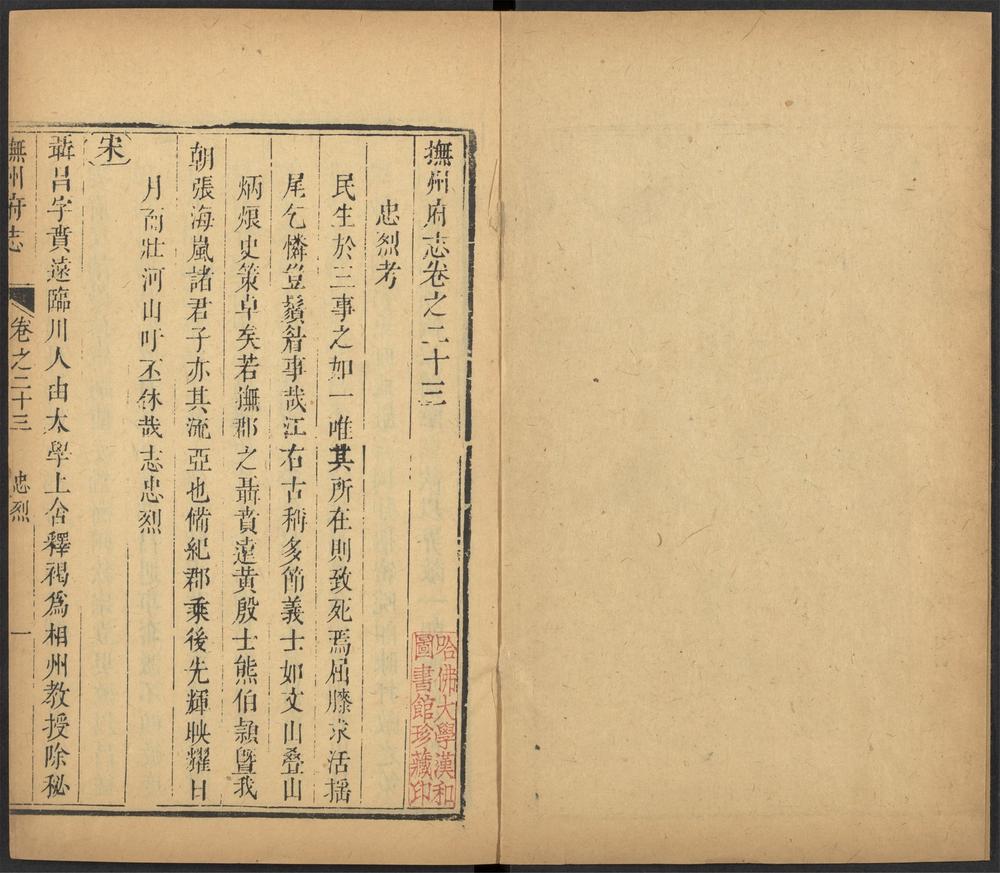 撫州府志卷之二十三
忠烈考
民生於三事之如一唯其所在則致死焉屈膝求活揺
尾乞憐豈鬚眉事哉江右古稱多節義士如文山疊山
炳烺史策卓矣若撫郡之聶賁遠黄殷士熊伯顯暨我
朝張海嵐諸君子亦其流亞也備紀郡乗後先輝映耀日
月而壯河山吁丕休哉志忠烈
宋
聶昌字賁遠臨川人由太學上舍釋褐爲相州教授除秘
撫州府志
卷之二十三
忠烈
一
哈佛大學漢和
圖書館珍藏印